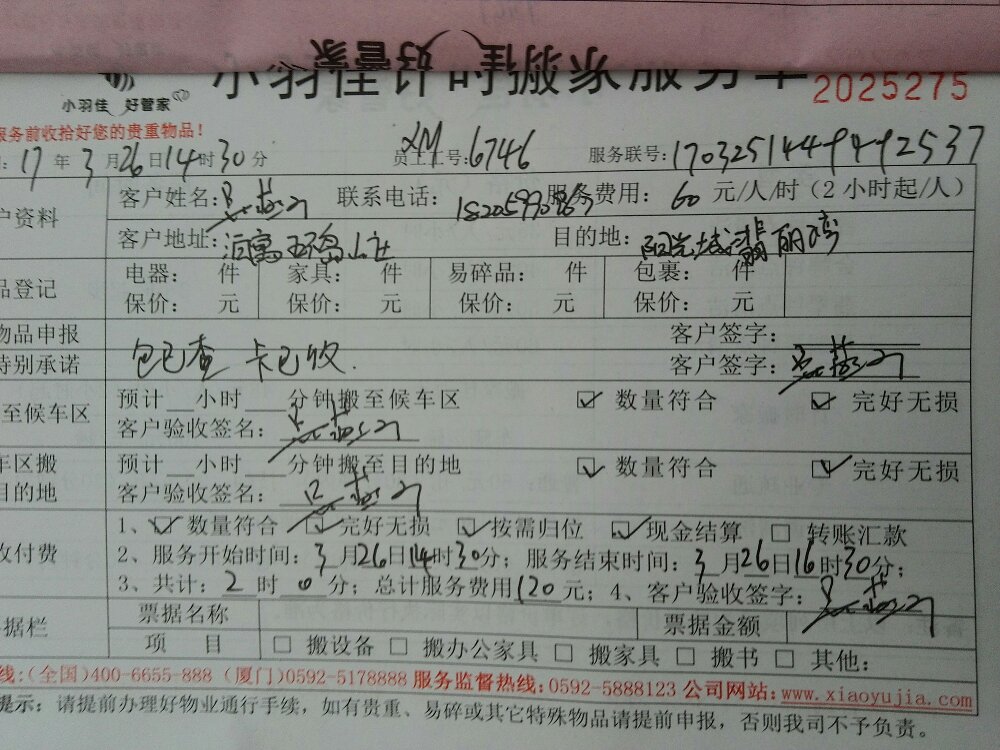 好管家 佳
小羽佳计时搬家服务单 2025275
小羽佳 好管家
服务前收拾好您的贵重物品!
17年3月26日14时30分 员工工号:XM6746 服务联号:
户资料 客户姓名: 联系电话: 服务费用:60元/人/时(2小时起/人)
客户地址: 目的地:阳光城翡丽湾
品登记 电器: 件 家具: 件 易碎品: 件 包裹: 件
保价: 元 保价: 元 保价: 元 保价: 元
物品申报 客户签字:
特别承诺 包已查 卡已收. 客户签字:
至候车区 预计__小时___分钟搬至候车区 ☑ 数量符合 ☑ 完好无损
客户验收签名:
车区搬 预计__小时___分钟搬至目的地 ☑ 数量符合 ☑ 完好无损
目的地 客户验收签名:
收付费 1、☑ 数量符合 ☑ 完好无损 ☑ 按需归位 ☑ 现金结算 □ 转账汇款
2、服务开始时间:3月26日14时30分;服务结束时间:3月26日16时30分;
3、共计:2时0分;总计服务费用120元;4、客户验收签字:
据栏 票据名称 票据金额
项 目 □ 搬设备 □ 搬办公家具 □ 搬家具 □ 搬书 □ 其他:
线:(全国)400-6655-888 (厦门)0592-5178888 服务监督热线:0592-5888123 公司网站:www.xiaoyujia.com
提示:请提前办理好物业通行手续,如有贵重、易碎或其它特殊物品请提前申报,否则我司不予负责。